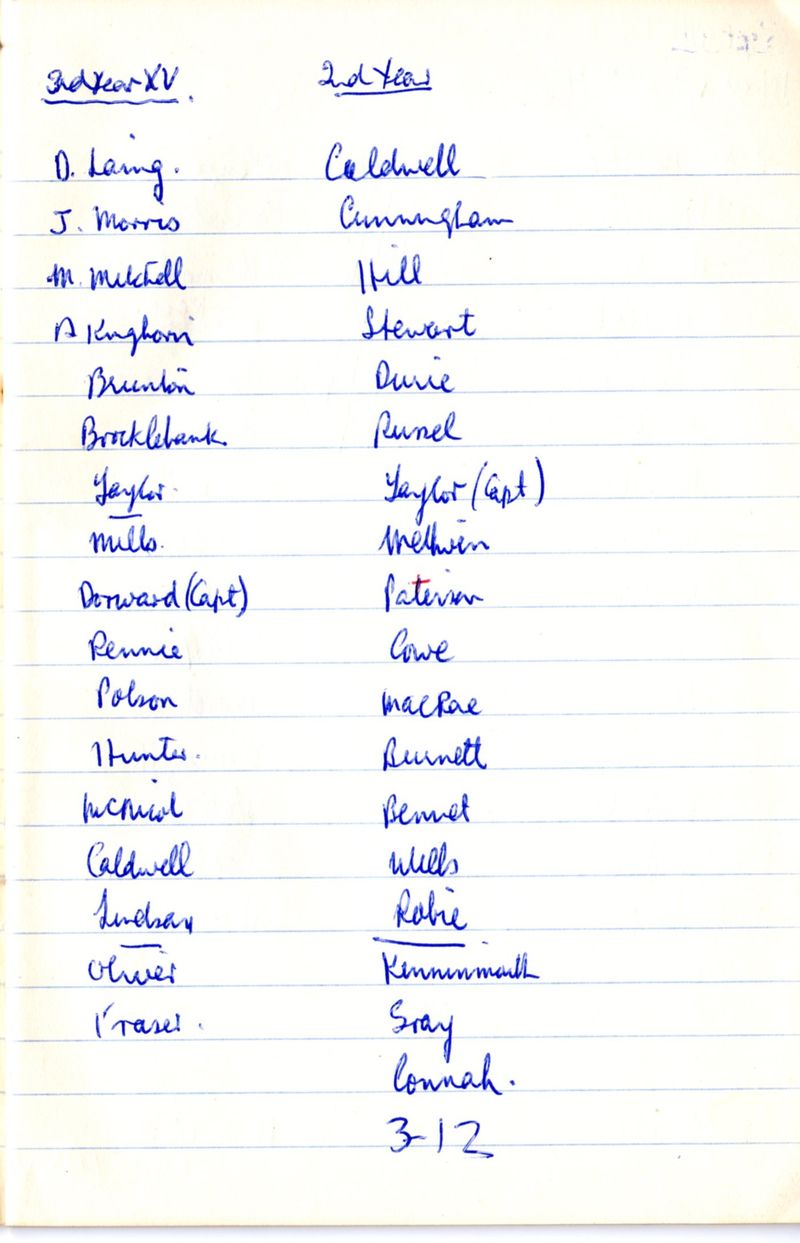 3rd Year XV.
2nd Year
D. Laing.
J. Morris
M. Mitchell
A Kinghorn
Brunton
Brocklebank.
Taylor.
Mills.
Dorward (Capt)
Rennie
Polson
Hunter.
McNicol
Caldwell
Lindsay
Oliver
Fraser.
Caldwell
Cunningham
Hill
Stewart
Durie
Russel
Taylor (Capt)
Methven
Paterson
Cowe
MacRae
Burnett
Bennet
Wells
Robie
Kenninmouth
Gray
Connah.
3-12